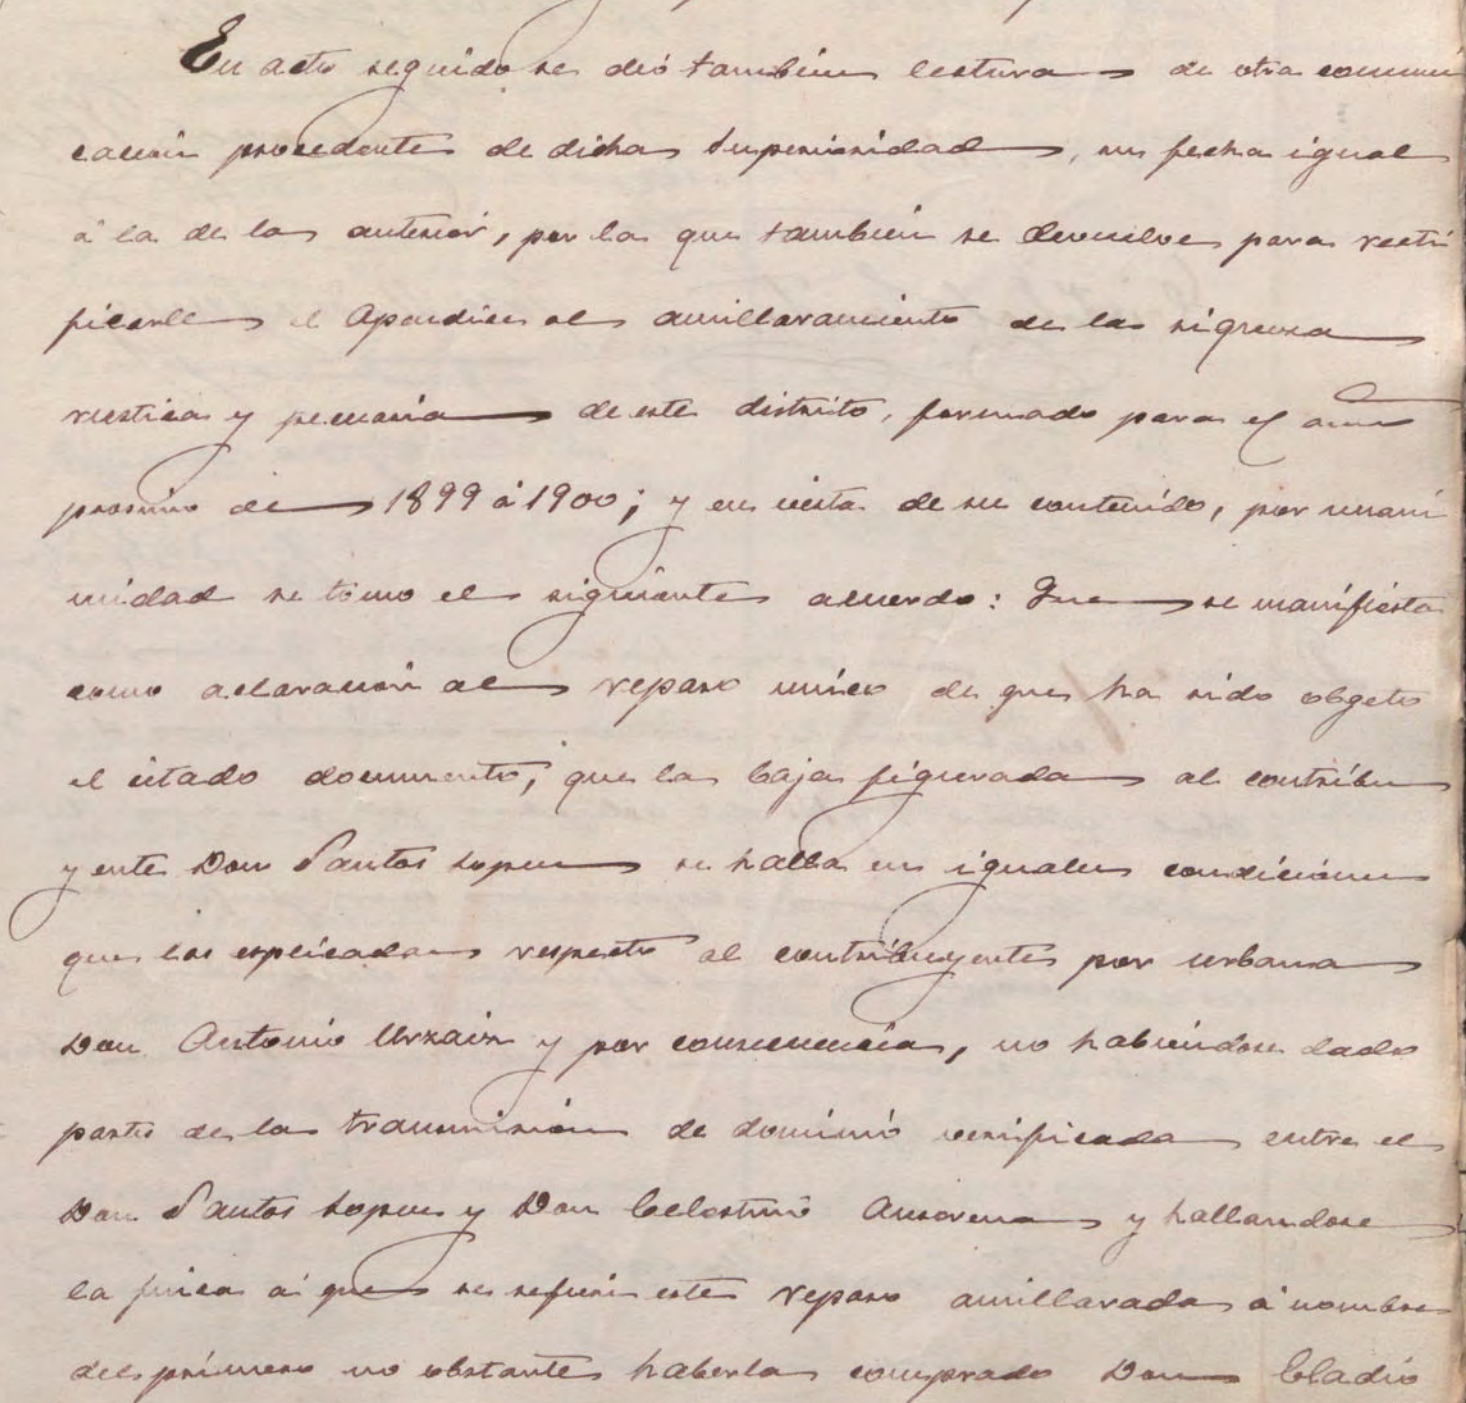 En acto seguido se dió tambien lectura de otra comuni
cación procedente de dicha Superioridad, su fecha igual
á la de la anterior, por la que tambien se devuelve para recti
ficarle el Apendice al amillaramiento de la riqueza
rustica y pecuaria de este distrito, formado para el año
procsimo de 1899 á 1900; y en vista de su contenido, por unani
midad se tomo el siguiente acuerdo: Que se manifiesta
como aclaración al reparo unico de que ha sido obgeto
el citado documento, que la baja figurada al contribu
yente Don Santos Lopez se halla en iguales condiciones
que las esplicadas respecto al contribuyente por urbana
Don Antonio Urzaiz y por consecuencia, no habiendose dado
parte de la transmisión de dominio verificada entre el
Don Santos Lopez y Don Celestino Ansorena y hallandose
la finca á que se refiere este reparo amillarada á nombre
del primero no obstante haberla comprado Don Eladio